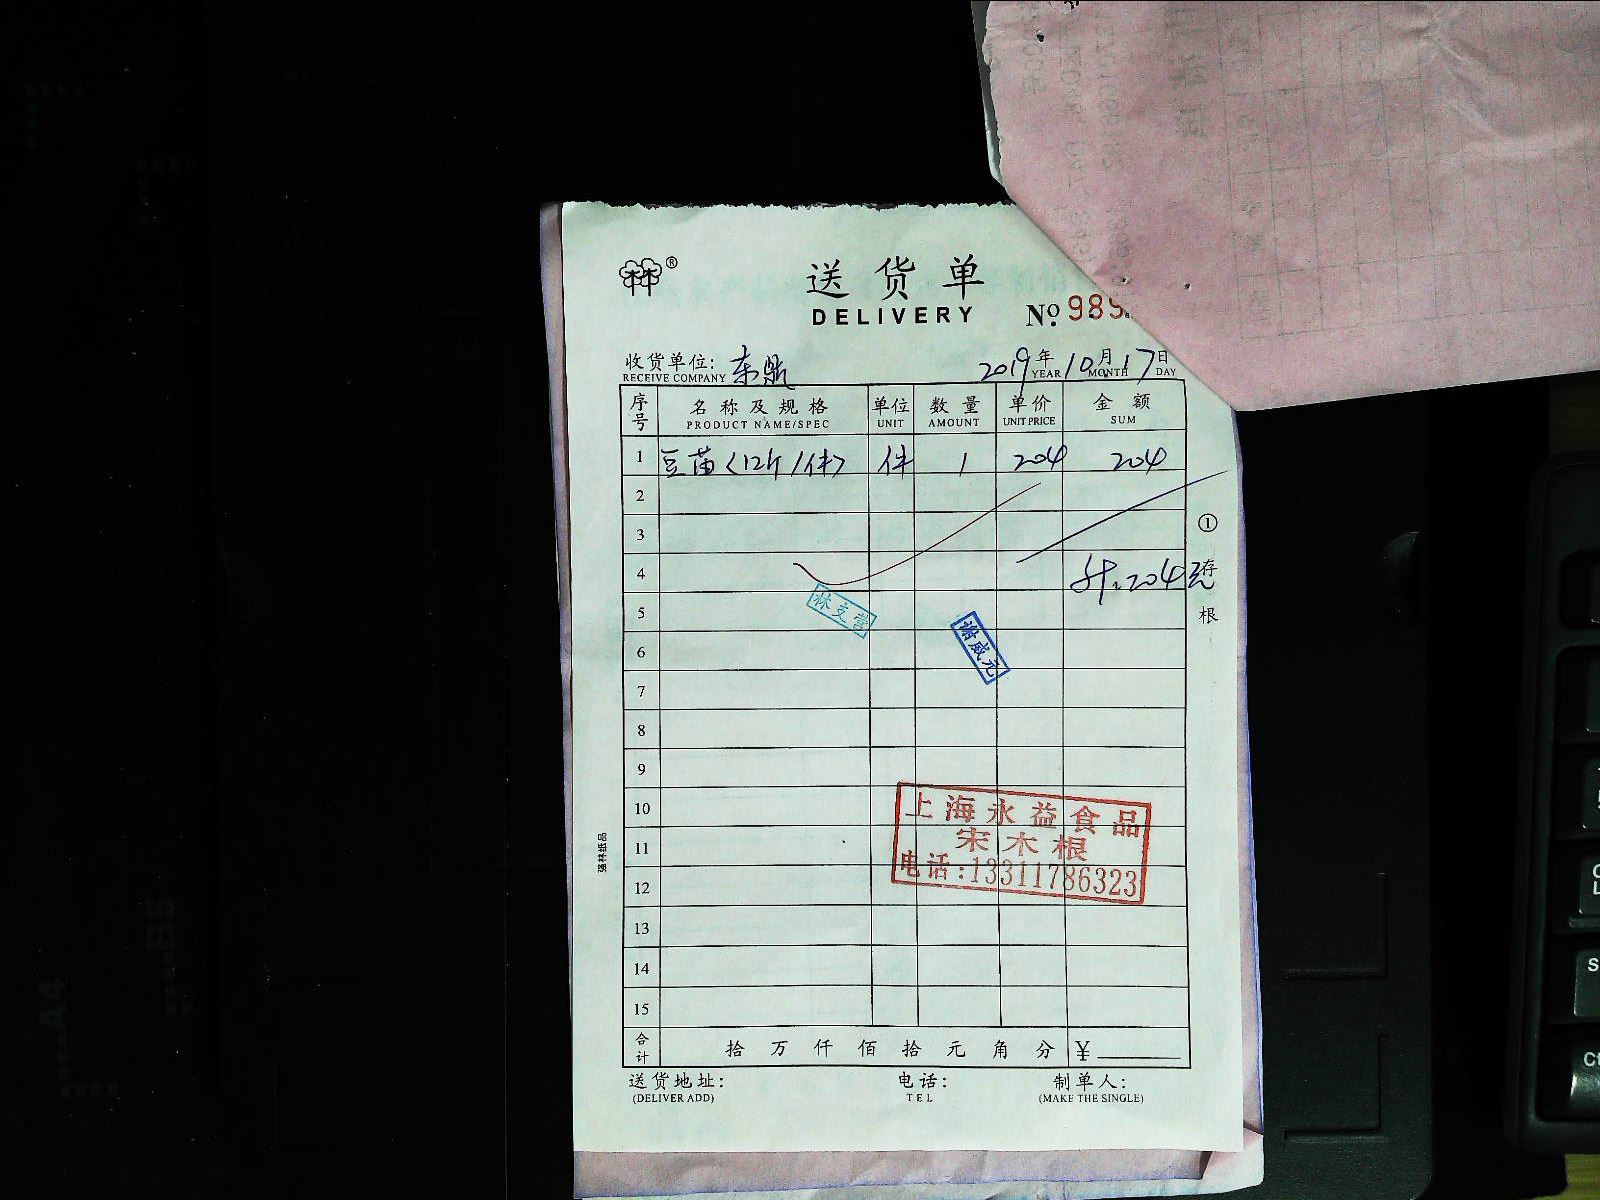 林®
送货单
DELIVERY
No. 989
收货单位: 东鼎 2019年10月17日
RECEIVE COMPANY YEAR MONTH DAY
序号 名称及规格 单位 数量 单价 金额
PRODUCT NAME/SPEC UNIT AMOUNT UNIT PRICE SUM
1 豆苗〈12斤/件〉 件 1 204 204
2
3
4 计:204元
5
6
7
8
9
10
11
12
13
14
15
① 存根
林支营
谢威元
上海永益食品
宋木根
电话:13311786323
强林纸品
合计 拾万仟佰拾元角分 ¥
送货地址: 电话: 制单人:
(DELIVER ADD) TEL (MAKE THE SINGLE)
B5
A4